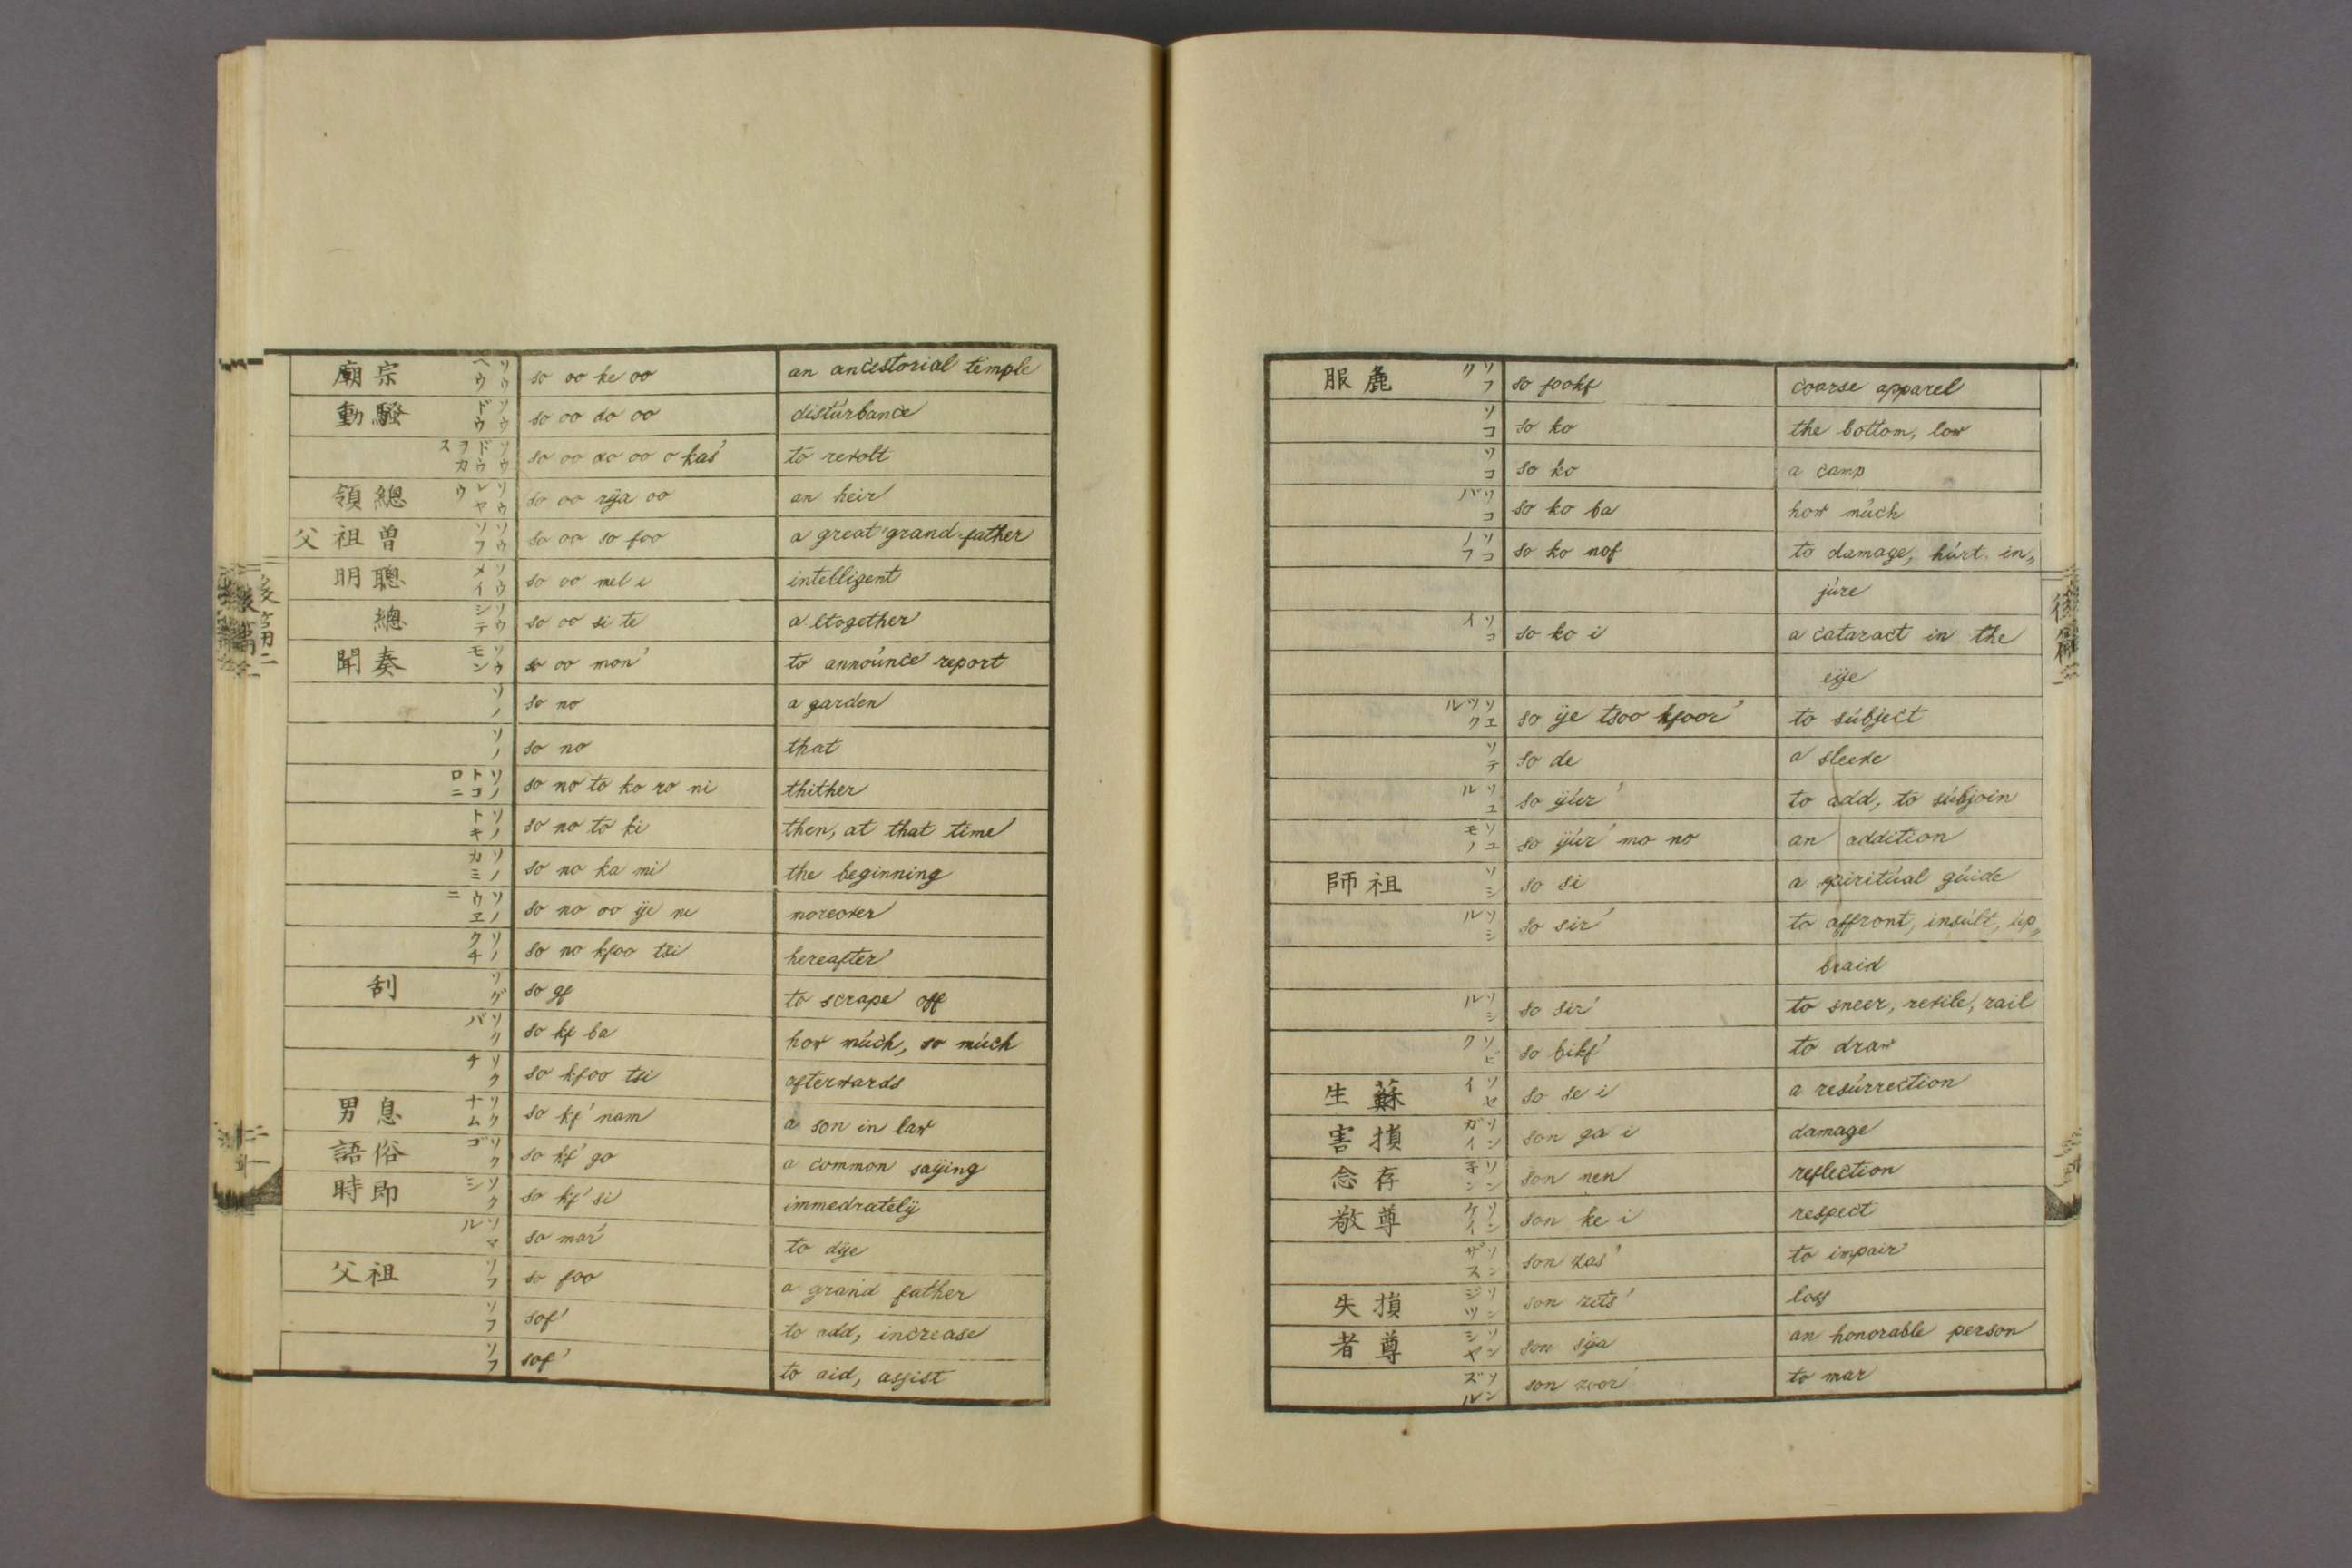 廟宗 ソウヘウ so oo he oo an ancestorial temple
動騷 ソウドウ so oo do oo disturbance
ソウドウヲカス so oo do oo o kas' to revolt
領總 ソウレヤウ so oo rÿa oo an heir
父祖曽 ソウソフ so oo so foo a great grand father
明聰 ソウメイ so oo mel i intelligent
總 ソウシテ so oo si te altogether
聞奏 ソウモン so oo mon' to announce report
ソノ so no a garden
ソノ so no that
ソノトコロニ so no to ko ro ni thither
ソノトキ so no to ki then, at that time
ソノカミ so no ka mi the beginning
ソノウヱニ so no oo ÿe ni moreover
ソノクチ so no kfoo tsi hereafter
刮 ソグ so gf to scrape off
ソクバ so kf ba how much, so much
ソクチ so kfoo tsi afterwards
男息 ソクナム so kf' nam a son in law
語俗 ソクゴ so kf' go a common saÿing
時即 ソクシ so kf' si immedratelÿ
ソマル so mar' to dÿe
父祖 ソフ so foo a grand father
ソフ sof' to add, increase
ソフ sof' to aid, assist
服麁 ソフク so fookf coarse apparel
ソコ so ko the bottom, low
ソコ so ko a camp
ソコバ so ko ba how much
ソコノフ so ko nof to damage, hurt, in„
jure
ソコイ so ko i a cataract in the
eÿe
ソエツクル so ÿe tsoo kfoor' to subject
ソテ so de a sleeve
ソユル so ÿur' to add, to subjoin
ソユモノ so ÿur' mo no an addition
師祖 ソシ so si a spiritual guide
ソシル so sir' to affront, insult, up„
braid
ソシル so sir' to sneer, revile, rail
ソビク so bikf' to draw
生蘇 ソセイ so se i a resurrection
害損 ソンガイ son ga i damage
念存 ソンネン son nen reflection
敬尊 ソンケイ son ke i respect
ソンザス son zas' to impair
失損 ソンジツ son zits' loss
者尊 ソンシヤ son sÿa an honorable person
ソンズル son zoor' to mar